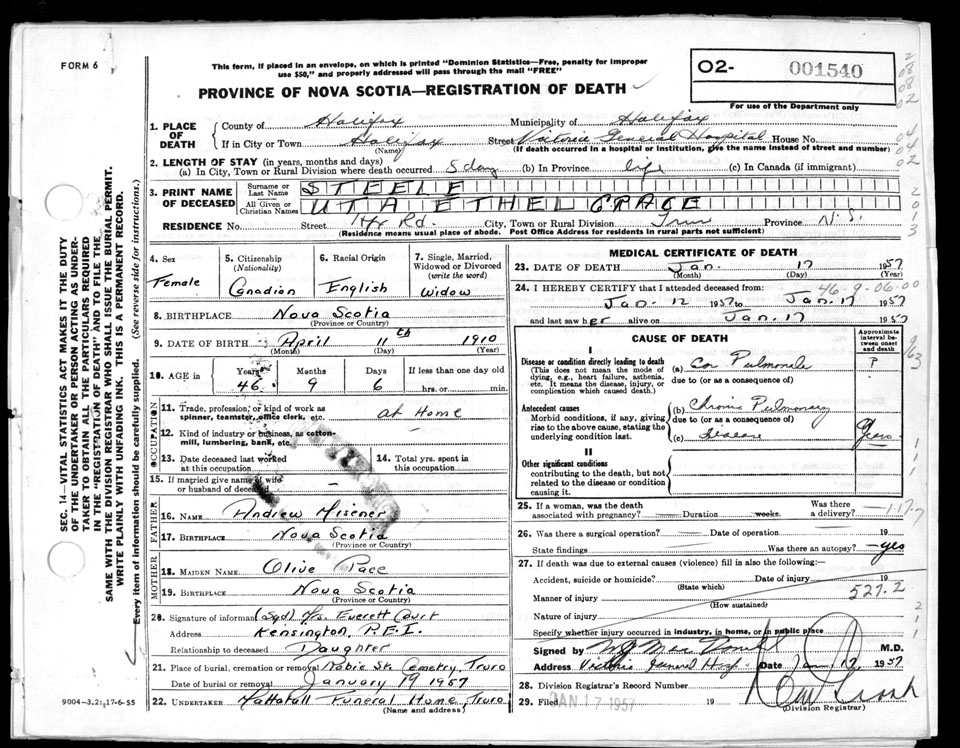 FORM 6
This form, if placed in an envelope, on which is printed "Dominion Statistics—Free, penalty for improper
use $50," and properly addressed will pass through the mail "FREE"
PROVINCE OF NOVA SCOTIA—REGISTRATION OF DEATH
02- 001540
For use of the Department only
1. PLACE OF DEATH
County of Halifax Municipality of Halifax
If in City or Town Halifax Street Victoria General Hospital House No.
(Name) (If death occurred in a hospital or institution, give the name instead of street and number)
2. LENGTH OF STAY (in years, months and days)
(a) In City, Town or Rural Division where death occurred 5 day (b) In Province life (c) In Canada (if immigrant)
3. PRINT NAME OF DECEASED
Surname or Last Name STEELE
All Given or Christian Names UTA ETHEL GRACE
RESIDENCE No. Street Hfx Rd. City, Town or Rural Division Truro Province N.S.
(Residence means usual place of abode. Post Office Address for residents in rural parts not sufficient)
4. Sex
Female
5. Citizenship
(Nationality)
Canadian
6. Racial Origin
English
7. Single, Married, Widowed or Divorced
(write the word)
Widow
8. BIRTHPLACE Nova Scotia
(Province or Country)
9. DATE OF BIRTH April 11th 1910
(Month) (Day) (Year)
10. AGE in Years Months Days If less than one day old
46 9 6 hrs. or min.
OCCUPATION
11. Trade, profession, or kind of work as
spinner, teamster, office clerk, etc. at Home
12. Kind of industry or business, as cotton-
mill, lumbering, bank, etc.
13. Date deceased last worked
at this occupation
14. Total yrs. spent in
this occupation
15. If married give name of wife
or husband of deceased –
FATHER
16. NAME Andrew Misener
17. BIRTHPLACE Nova Scotia
(Province or Country)
MOTHER
18. MAIDEN NAME Olive Pace
19. BIRTHPLACE Nova Scotia
(Province or Country)
20. Signature of informant (Sgd) Mrs. Everett Court
Address Kensington, P.E.I.
Relationship to deceased Daughter
21. Place of burial, cremation or removal Robie St. Cemetry, Truro
Date of burial or removal January 19 1957
22. UNDERTAKER Mattatall Funeral Home, Truro
(Name and address)
9004—3.21:17-6-55
MEDICAL CERTIFICATE OF DEATH
23. DATE OF DEATH Jan. 17 1957
(Month) (Day) (Year)
46-9-06-00
24. I HEREBY CERTIFY that I attended deceased from:
Jan. 12 1957 to Jan. 17 1957
and last saw her alive on Jan. 17 1957
CAUSE OF DEATH
Approximate interval between onset and death
I
Disease or condition directly leading to death
(This does not mean the mode of
dying, e.g., heart failure, asthenia,
etc. It means the disease, injury, or
complication which caused death.)
(a) Cor Pulmonale ?
due to (or as a consequence of)
Antecedent causes
Morbid conditions, if any, giving
rise to the above cause, stating the
underlying condition last.
(b) Chronic Pulmonary
due to (or as a consequence of)
(c) disease Years
II
Other significant conditions
contributing to the death, but not
related to the disease or condition
causing it.
25. If a woman, was the death
associated with pregnancy? Duration weeks. Was there
a delivery?
26. Was there a surgical operation? Date of operation 19
State findings Was there an autopsy? yes
27. If death was due to external causes (violence) fill in also the following:—
Accident, suicide or homicide? Date of injury 19
(State which)
Manner of injury 527.2
(How sustained)
Nature of injury
Specify whether injury occurred in industry, in home, or in public place
Signed by M.D.
Address Victoria General Hosp. Date Jan. 17, 1957
28. Division Registrar's Record Number
29. Filed JAN 17 1957 19
(Division Registrar)
SEC. 14—VITAL STATISTICS ACT MAKES IT THE DUTY
OF THE UNDERTAKER OR PERSON ACTING AS UNDER-
TAKER TO OBTAIN ALL THE PARTICULARS REQUIRED
IN THE "REGISTRATION OF DEATH" AND TO FILE THE
SAME WITH THE DIVISION REGISTRAR WHO SHALL ISSUE THE BURIAL PERMIT.
WRITE PLAINLY WITH UNFADING INK. THIS IS A PERMANENT RECORD.
Every item of information should be carefully supplied. (See reverse side for instructions).